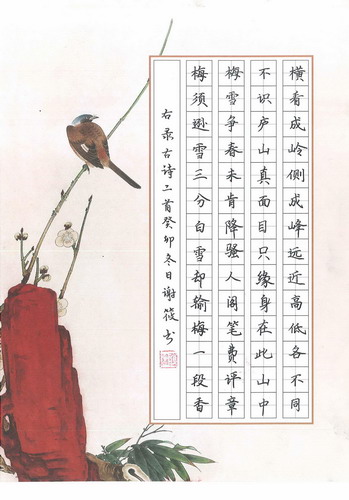 横看成岭侧成峰远近高低各不同
不识庐山真面目只缘身在此山中
梅雪争春未肯降骚人阁笔费评章
梅须逊雪三分白雪却输梅一段香
右录古诗二首癸卯冬日谢筱书